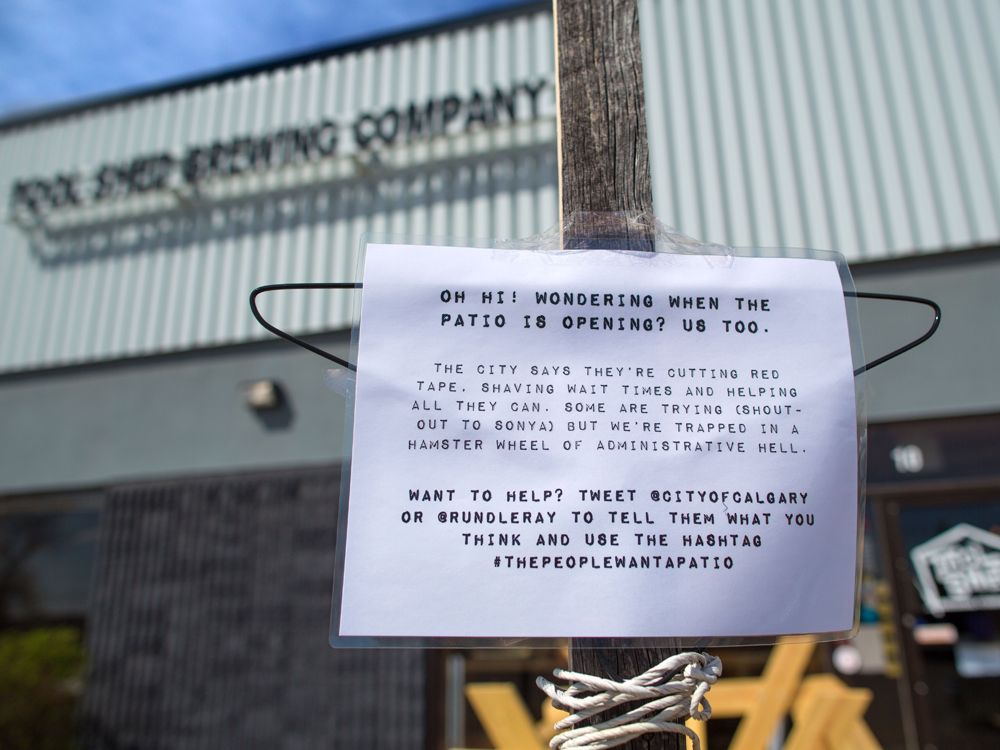 TOOL SHED BREWING COMPANY
OH HI! WONDERING WHEN THE
PATIO IS OPENING? US TOO.
THE CITY SAYS THEY'RE CUTTING RED
TAPE, SHAVING WAIT TIMES AND HELPING
ALL THEY CAN. SOME ARE TRYING (SHOUT-
OUT TO SONYA) BUT WE'RE TRAPPED IN A
HAMSTER WHEEL OF ADMINISTRATIVE HELL.
WANT TO HELP? TWEET @CITYOFCALGARY
OR @RUNDLERAY TO TELL THEM WHAT YOU
THINK AND USE THE HASHTAG
#THEPEOPLEWANTAPATIO
18
TOOL
SHED